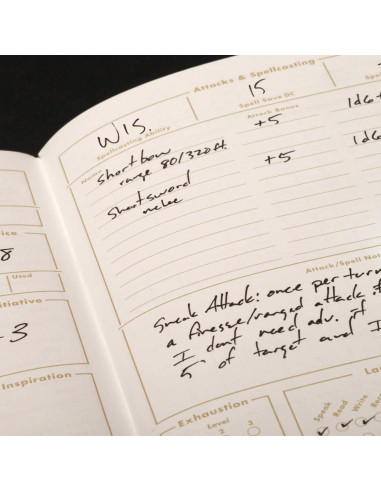 Attacks & Spellcasting
WIS.
15
Spellcasting Ability
Spell Save DC
Name
Attack Bonus
shortbow
+5
1d6+
range 80/320ft.
shortsword
+5
1d6
melee
Attack/Spell Not
Sneak Attack: once per turn
a finesse/ranged attack.
I dont need adv. if
5' of target and I
Used
8
itiative
-3
Inspiration
Exhaustion
Level
2 3
La
Speak
Read
Write